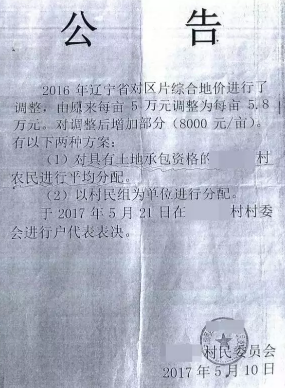 公告
2016年辽宁省对区片综合地价进行了
调整，由原来每亩5万元调整为每亩5.8
万元。对调整后增加部分（8000元/亩）。
有以下两种方案：
（1）对具有土地承包资格的 村
农民进行平均分配。
（2）以村民组为单位进行分配。
于2017年5月21日在 村村委
会进行户代表表决。
村民委员会
2017年5月10日